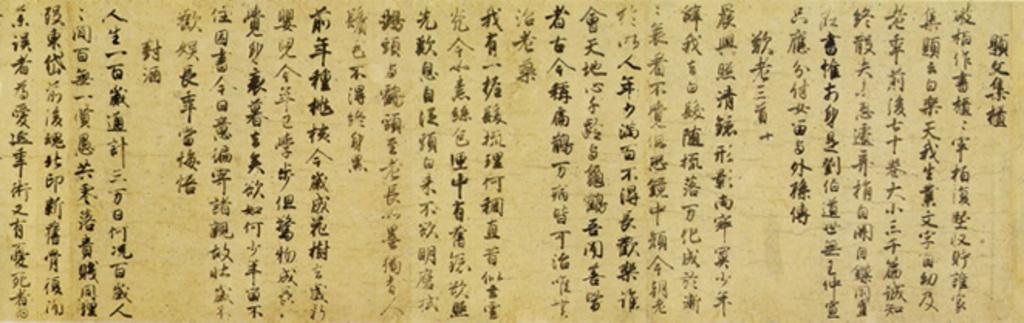 題文集櫃
破柏作書櫃〻牢柏復堅収貯誰家
集題云白樂天我生業文字自幼及
老年前後七十卷大小三千篇誠知
終散失未忍遽弃捐自開自鏁閉置
在書帷前身是鄧伯道世無王仲宣
只應分付女留与外孫傳
歎老三首
晨興照清鏡形影両寂寞少年
辝我去白髮随梳落万化成於漸
〻衰看不覺但恐鏡中顔今朝老
於昨人年少満百不得長歡樂誰
會天地心千齡与龜鶴吾聞善醫
者古今稱扁鵲万病皆可治唯無
治老藥
我有一握髮梳理何稠直昔似玄雲
光今如素絲色匣中有舊鏡欲照
先歎息自從頭白来不欲明磨拭
鵶頭与鶴頸至老長如墨獨有人
鬢毛不得終身黒
前年種桃核今歳成花樹去歳新
嬰児今年已學歩但驚物成長不
覺身衰暮去矣欲如何少年留不
住因書今日意遍寄諸親故壮歳不
歡娯長年當悔悟
對酒
人生一百歳通計三万日何況百歳人
〻間百無一賢愚共零落貴賤同埋
歿東岱前後魂北邙新舊骨復聞
藥誤者為愛延年術又有憂死者為